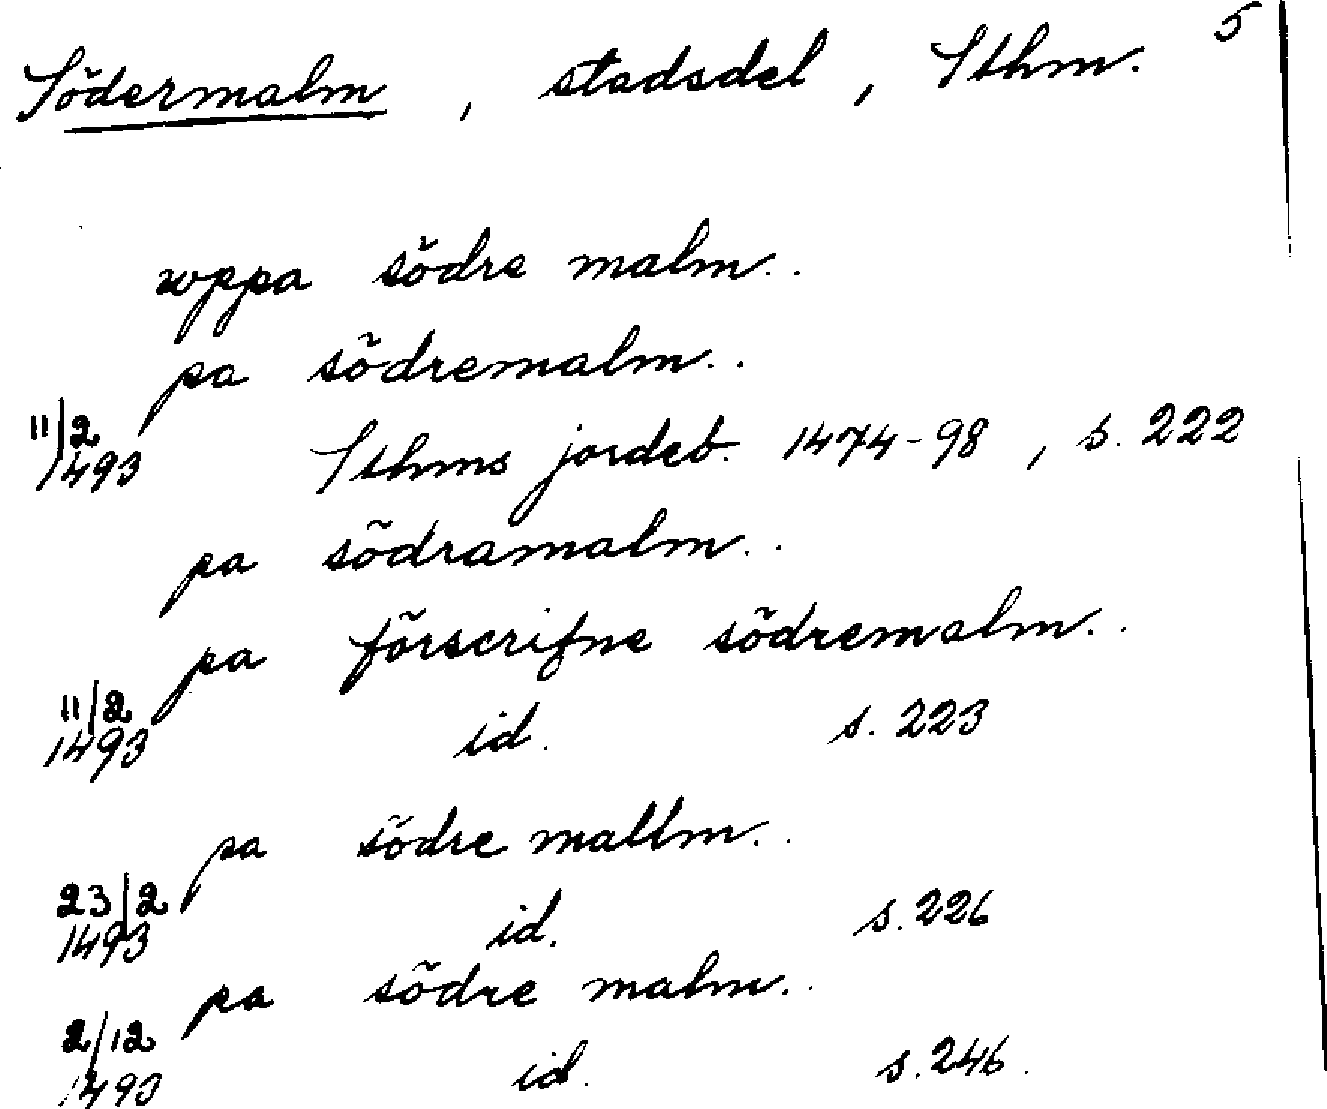 5
Södermalm, stadsdel, Sthm.
wppa södre malm..
pa södremalm..
11/2 1493 Sthms jordeb. 1474-98, s. 222
pa södramalm..
pa förscrifne södremalm..
11/2 1493 id. s. 223
pa södre mallm..
23/2 1493 id. s. 226
pa södre malm..
2/12 1493 id. s. 246.